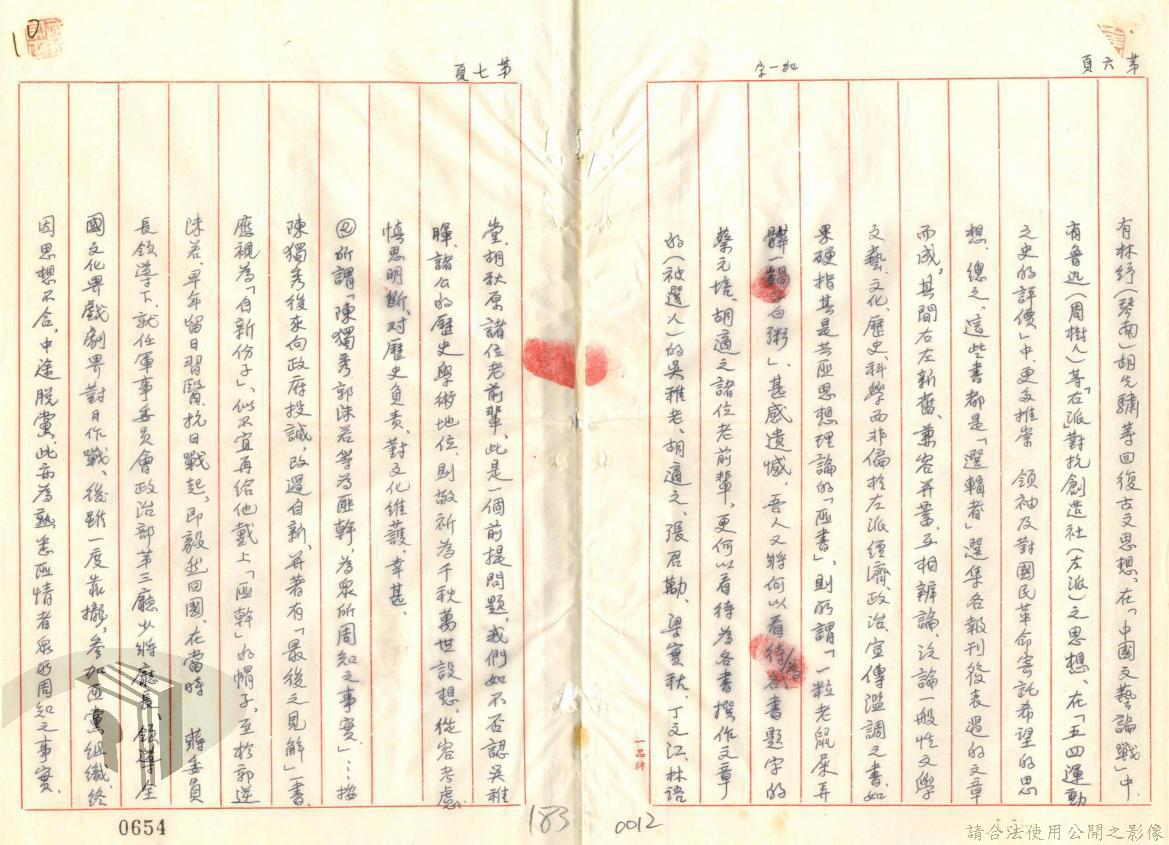 第六頁
加一字
有林紓(琴南)胡先驌等回復古文思想、在「中國文藝論戰」中、
有魯迅(周樹人)等「在」派對抗創造社(左派)之思想、在「五四運動
之史的評價」中、更多推崇 領袖及對國民革命寄託希望的思
想、總之、這些書都是「選輯者」選集各報刊發表過的文章
而成、其間右左新舊、兼容并蓄、互相辨論、泛論一般性文學
文藝、文化、歷史、科學而非偏於左派經濟、政治、宣傳濫調之書、如
果硬指其是共匪思想理論的「匪書」、則所謂「一粒老鼠屎弄
髒一鍋白粥」、甚感遺憾、吾人又將何以看待為各書題字的
蔡元培、胡適之諸位老前輩、更何以看待為各書撰作文章
的(被選人)的吳稚老、胡適之、張君勱、梁實秋、丁文江、林語
一品牌
第七頁
堂、胡秋原諸位老前輩、此是一個前提問題、我們如不否認吳稚
暉、諸公的歷史學術地位、則敬祈為千秋萬世設想、從容考慮、
慎思明斷、对歷史負責、對文化維護、幸甚、
②所謂「陳獨秀郭沫若等為匪幹、為眾所周知之事實」…按
陳獨秀後來向政府投誠、改過自新、并著有「最後之見解」一書、
應視為「自新份子」、似不宜再給他戴上「匪幹」的帽子、至於郭逆
沫若、早年留日習醫、抗日戰起、即毅然回國、在當時 蔣委員
長領導下、就任軍事委員會政治部第三廳少將廳長、領導全
國文化界戲劇界對日作戰、後雖一度靠攏、參加匪黨組織、終
因思想不合、中途脫黨、此亦為熟悉匪情者眾所周知之事實、
0654
183
0012
請合法使用公開之影像